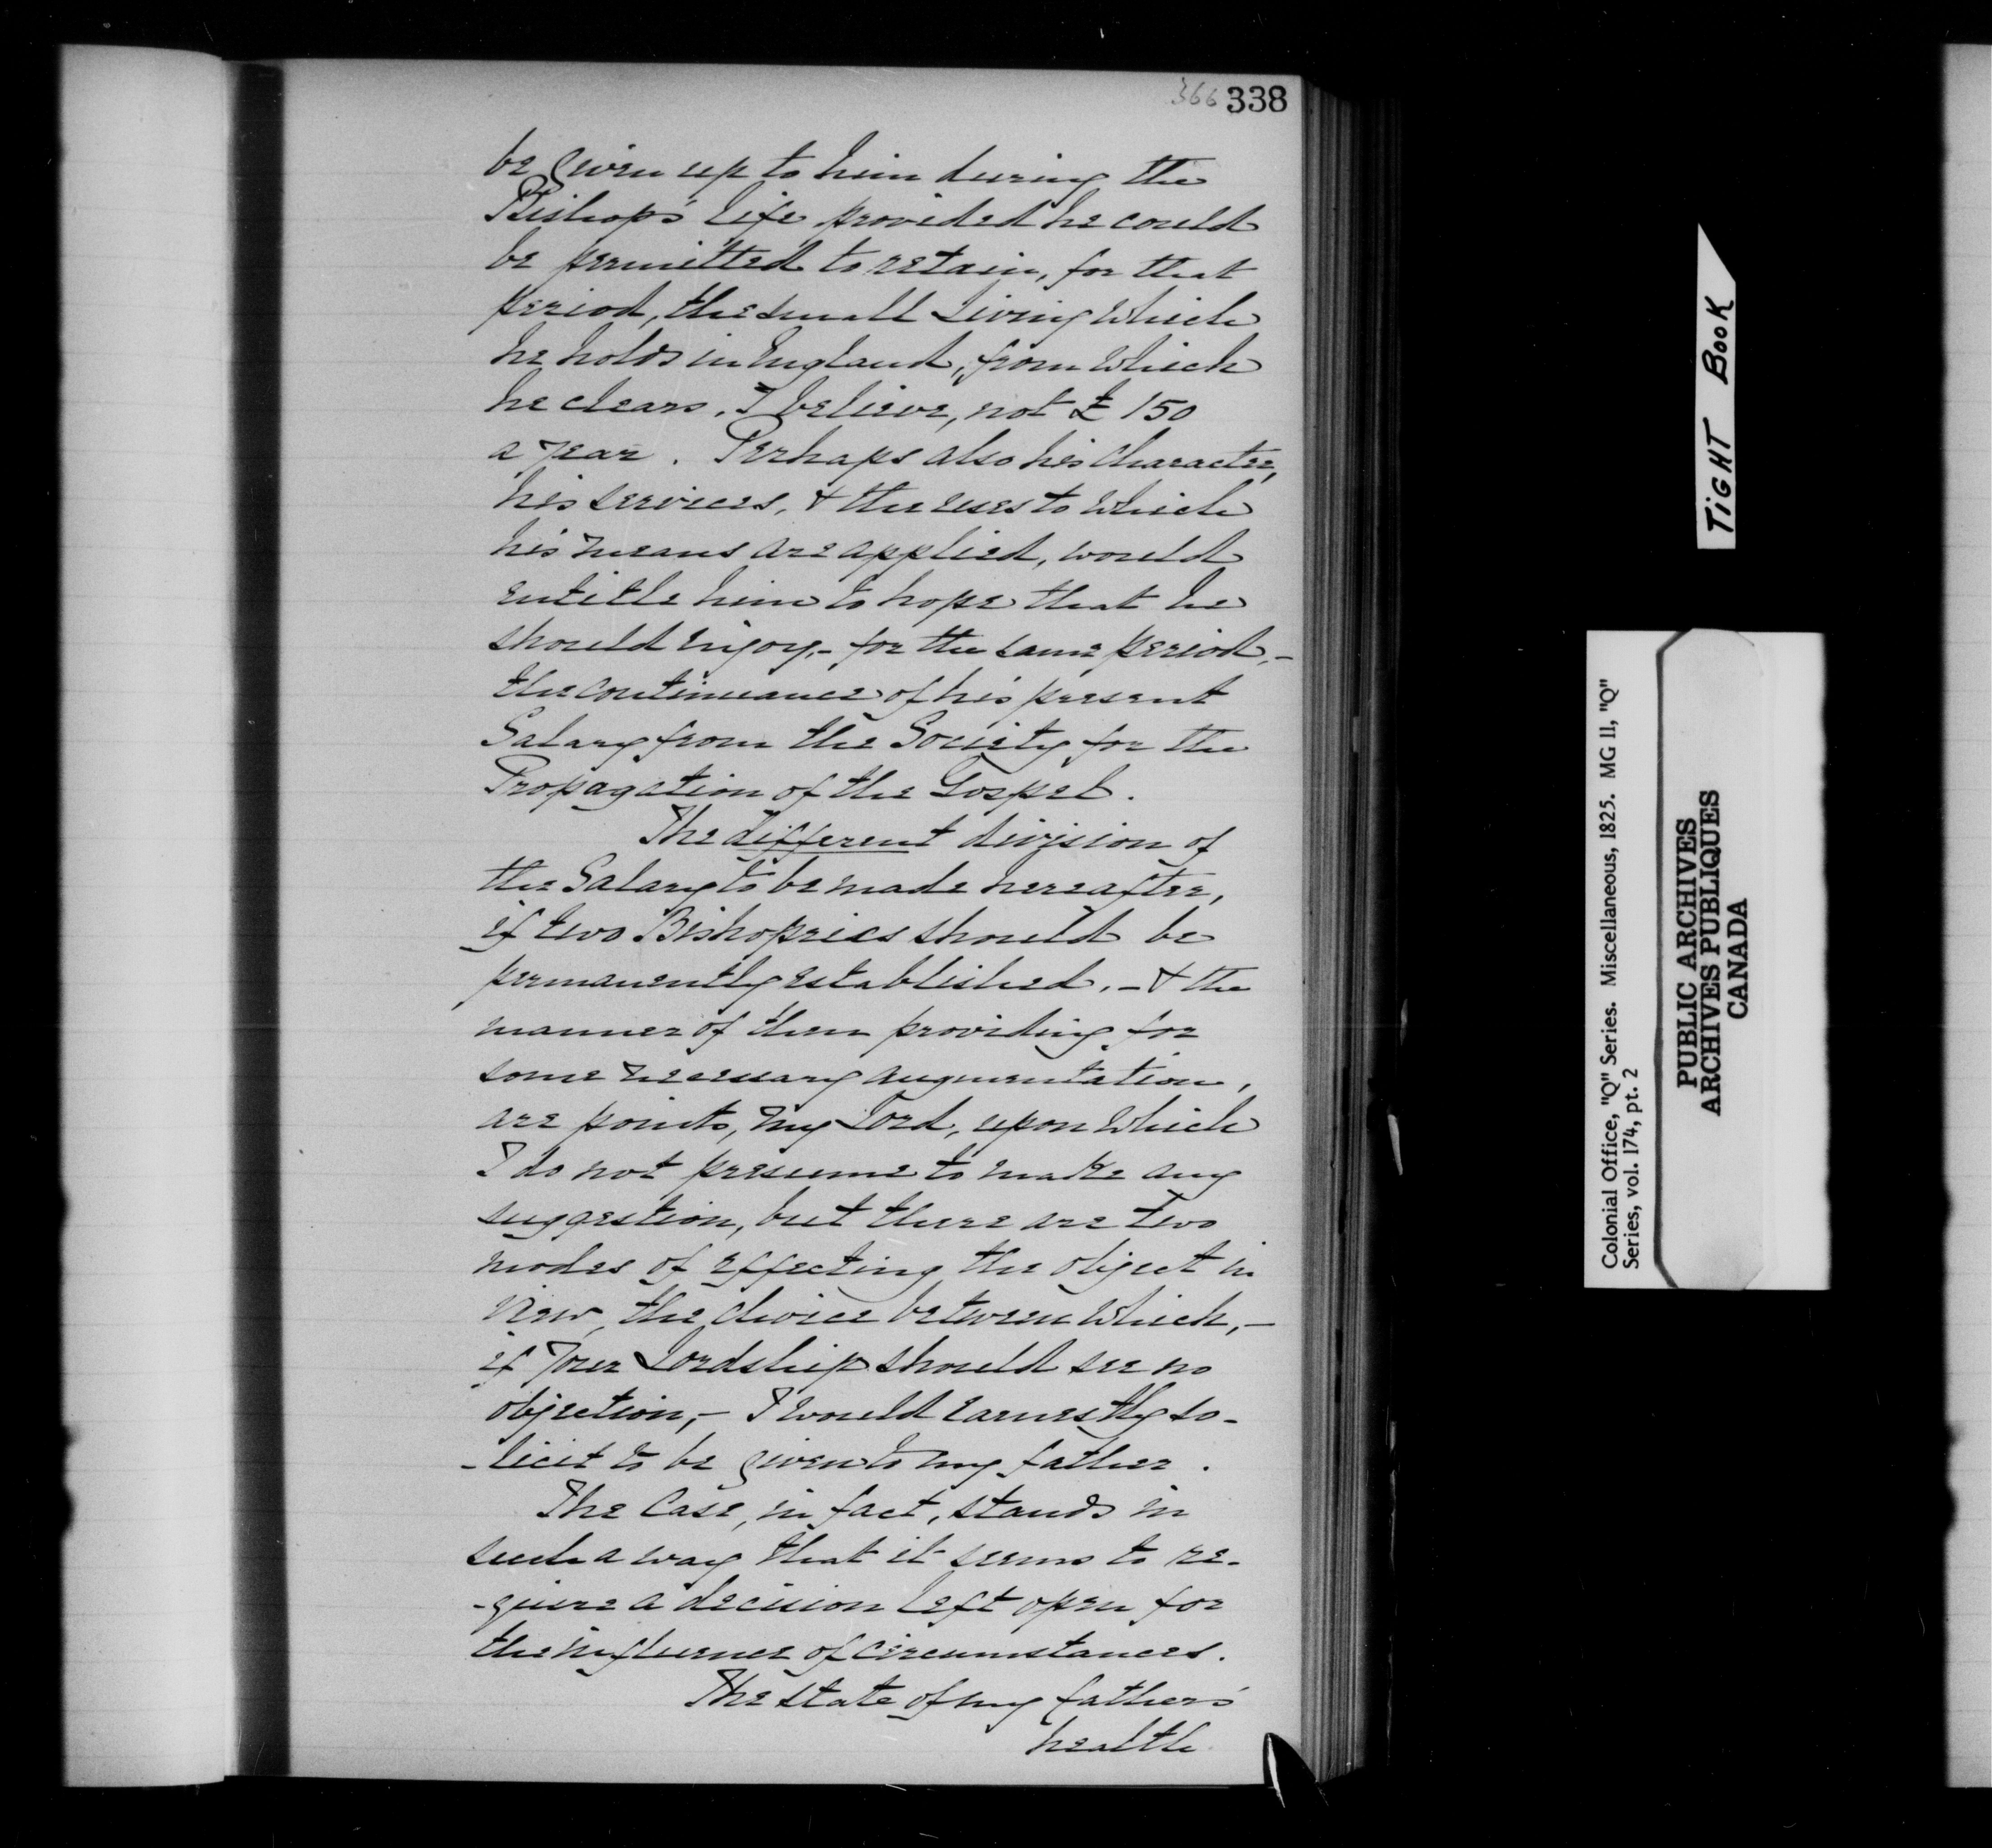 366 338
be given up to him during the
Bishop's life provided he could
be permitted to retain, for that
period, the small Living which
he holds in England, from which
he clears, I believe, not £ 150
a year. Perhaps also his character,
his services, & the uses to which
his means are applied, would
entitle him to hope that he
should enjoy, - for the same period, -
the continuance of his present
Salary from the Society for the
Propagation of the Gospel.
The different division of
the Salary to be made hereafter,
if two Bishoprics should be
permanently established, - & the
manner of then providing for
some necessary augmentation,
are points, my Lord, upon which
I do not presume to make any
suggestion, but there are two
modes of effecting the object in
view, the choice between which, -
if Your Lordship should see no
objection, - I would earnestly so-
-licit to be given to my father.
The Case, in fact, stands in
such a way that it seems to re-
-quire a decision left open for
the influence of circumstances.
The state of my father's
health
TIGHT BOOK
Colonial Office, "Q" Series. Miscellaneous, 1825. MG 11, "Q"
Series, vol. 174, pt. 2
PUBLIC ARCHIVES
ARCHIVES PUBLIQUES
CANADA